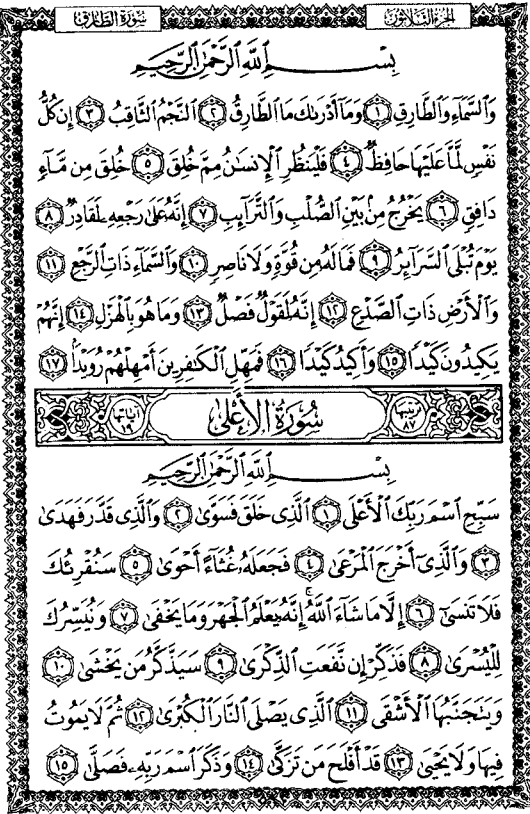 الجزء الثلاثون
سورة الطارق
بِسْمِ ٱللَّهِ ٱلرَّحْمَٰنِ ٱلرَّحِيمِ
وَٱلسَّمَآءِ وَٱلطَّارِقِ ١ وَمَآ أَدْرَىٰكَ مَا ٱلطَّارِقُ ٢ ٱلنَّجْمُ ٱلثَّاقِبُ ٣ إِن كُلُّ
نَفْسٍ لَّمَّا عَلَيْهَا حَافِظٌ ٤ فَلْيَنظُرِ ٱلْإِنسَٰنُ مِمَّ خُلِقَ ٥ خُلِقَ مِن مَّآءٍ
دَافِقٍ ٦ يَخْرُجُ مِنۢ بَيْنِ ٱلصُّلْبِ وَٱلتَّرَآئِبِ ٧ إِنَّهُۥ عَلَىٰ رَجْعِهِۦ لَقَادِرٌ ٨
يَوْمَ تُبْلَى ٱلسَّرَآئِرُ ٩ فَمَا لَهُۥ مِن قُوَّةٍ وَلَا نَاصِرٍ ١٠ وَٱلسَّمَآءِ ذَاتِ ٱلرَّجْعِ ١١
وَٱلْأَرْضِ ذَاتِ ٱلصَّدْعِ ١٢ إِنَّهُۥ لَقَوْلٌ فَصْلٌ ١٣ وَمَا هُوَ بِٱلْهَزْلِ ١٤ إِنَّهُمْ
يَكِيدُونَ كَيْدًا ١٥ وَأَكِيدُ كَيْدًا ١٦ فَمَهِّلِ ٱلْكَٰفِرِينَ أَمْهِلْهُمْ رُوَيْدًۢا ١٧
ترتيبها ٨٧ سُورَةُ ٱلْأَعْلَىٰ آياتها ١٩
بِسْمِ ٱللَّهِ ٱلرَّحْمَٰنِ ٱلرَّحِيمِ
سَبِّحِ ٱسْمَ رَبِّكَ ٱلْأَعْلَى ١ ٱلَّذِى خَلَقَ فَسَوَّىٰ ٢ وَٱلَّذِى قَدَّرَ فَهَدَىٰ
٣ وَٱلَّذِىٓ أَخْرَجَ ٱلْمَرْعَىٰ ٤ فَجَعَلَهُۥ غُثَآءً أَحْوَىٰ ٥ سَنُقْرِئُكَ
فَلَا تَنسَىٰٓ ٦ إِلَّا مَا شَآءَ ٱللَّهُ ۚ إِنَّهُۥ يَعْلَمُ ٱلْجَهْرَ وَمَا يَخْفَىٰ ٧ وَنُيَسِّرُكَ
لِلْيُسْرَىٰ ٨ فَذَكِّرْ إِن نَّفَعَتِ ٱلذِّكْرَىٰ ٩ سَيَذَّكَّرُ مَن يَخْشَىٰ ١٠
وَيَتَجَنَّبُهَا ٱلْأَشْقَى ١١ ٱلَّذِى يَصْلَى ٱلنَّارَ ٱلْكُبْرَىٰ ١٢ ثُمَّ لَا يَمُوتُ
فِيهَا وَلَا يَحْيَىٰ ١٣ قَدْ أَفْلَحَ مَن تَزَكَّىٰ ١٤ وَذَكَرَ ٱسْمَ رَبِّهِۦ فَصَلَّىٰ ١٥